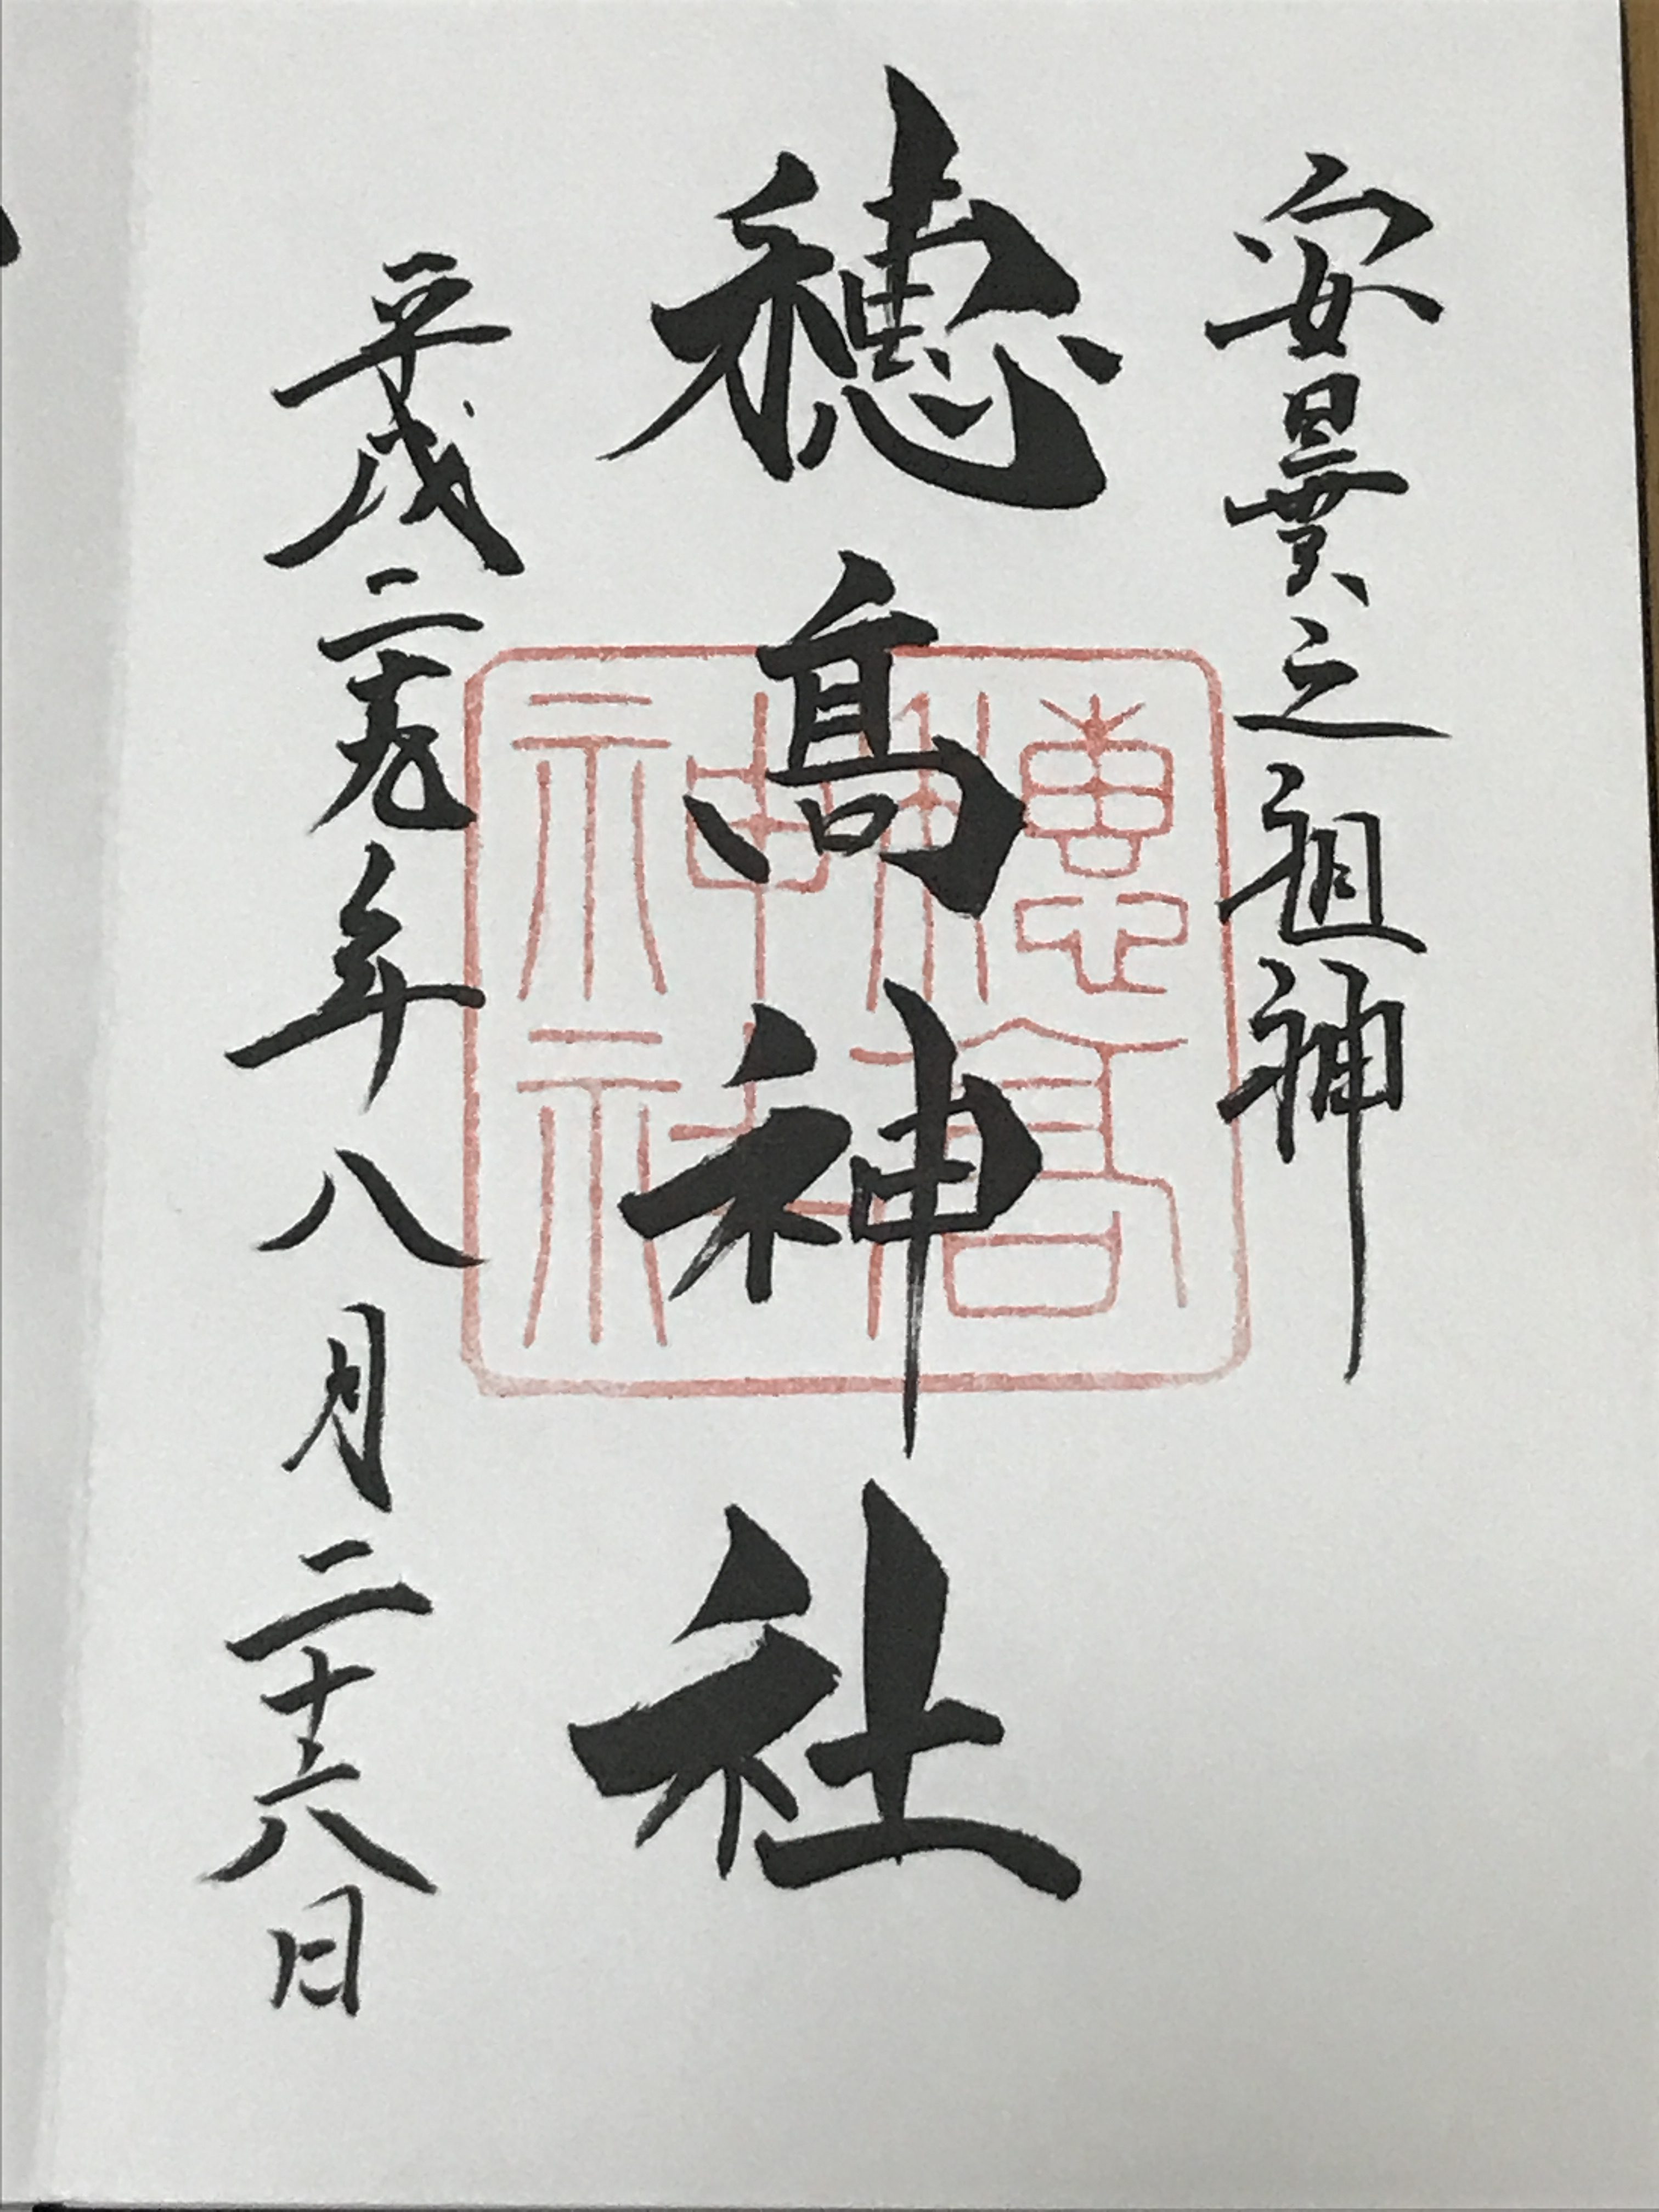 安曇之祖神
穂髙神社
平成二十九年八月二十六日
穗高
神社